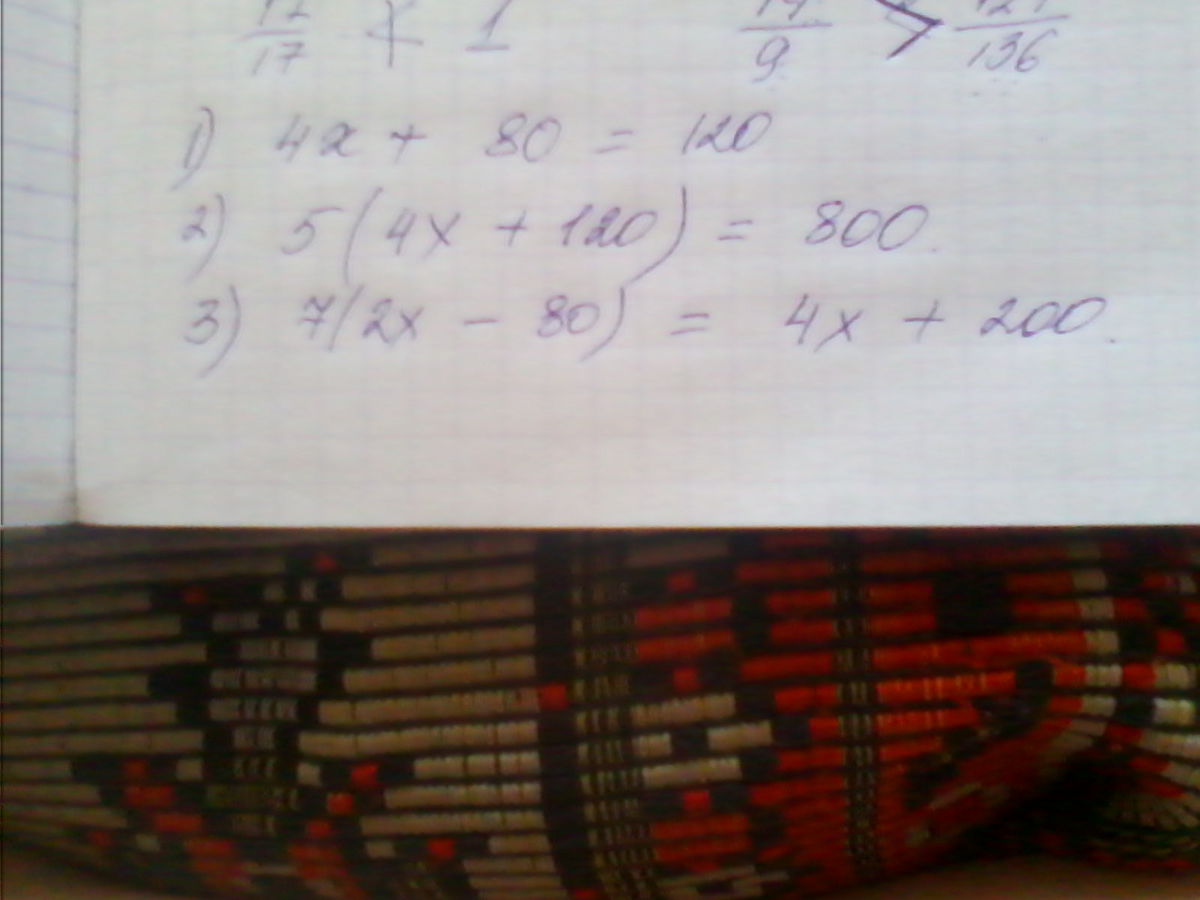 17 < 1 9 > 136
1) 4x + 80 = 120
2) 5(4x + 120) = 800.
3) 7(2x - 80) = 4x + 200.